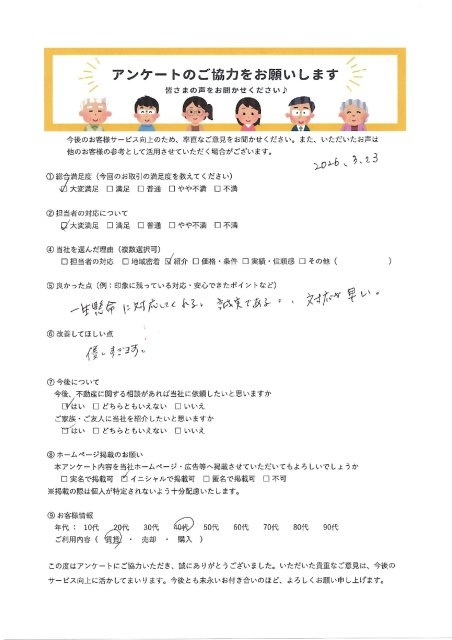 アンケートのご協力をお願いします
皆さまの声をお聞かせください♪
今後のお客様サービス向上のため、率直なご意見をお聞かせください。また、いただいたお声は
他のお客様の参考として活用させていただく場合がございます。
2026.3.23
①総合満足度（今回のお取引の満足度を教えてください）
☑大変満足 □満足 □普通 □やや不満 □不満
②担当者の対応について
☑大変満足 □満足 □普通 □やや不満 □不満
④当社を選んだ理由（複数選択可）
□担当者の対応 □地域密着 ☑紹介 □価格・条件 □実績・信頼感 □その他（
⑤良かった点（例：印象に残っている対応・安心できたポイントなど）
一生懸命に対応してくれる。誠実である。対応が早い。
⑥改善してほしい点
優しすぎます。
⑦今後について
今後、不動産に関する相談があれば当社に依頼したいと思いますか
☑はい □どちらともいえない □いいえ
ご家族・ご友人に当社を紹介したいと思いますか
☑はい □どちらともいえない □いいえ
⑧ホームページ掲載のお願い
本アンケート内容を当社ホームページ・広告等へ掲載させていただいてもよろしいでしょうか
□実名で掲載可 ☑イニシャルで掲載可 □匿名で掲載可 □不可
※掲載の際は個人が特定されないよう十分配慮いたします。
⑨お客様情報
年代： 10代 20代 30代 40代 50代 60代 70代 80代 90代
ご利用内容（ 賃貸 ・ 売却 ・ 購入 ）
この度はアンケートにご協力いただき、誠にありがとうございました。いただいた貴重なご意見は、今後の
サービス向上に活かしてまいります。今後とも末永いお付き合いのほど、よろしくお願い申し上げます。